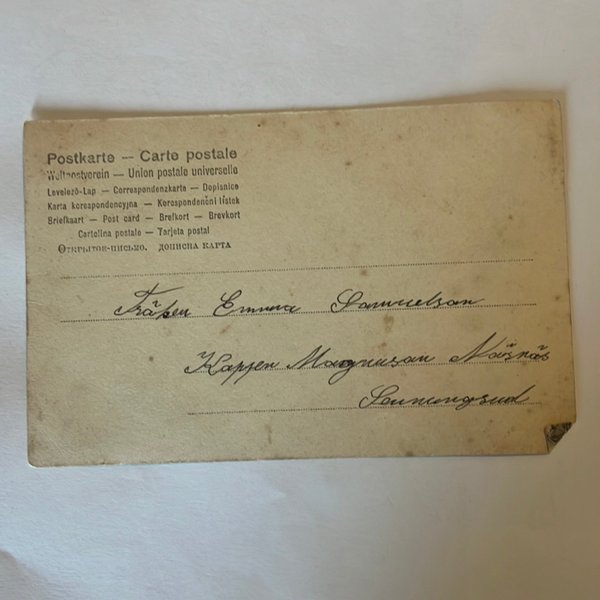 Postkarte — Carte postale
Weltpostverein — Union postale universelle
Levelező-Lap — Correspondenzkarte — Dopisnice
Karta korespondencyjna — Korespondenční lístek
Briefkaart — Post card — Brefkort — Brevkort
Cartolina postale — Tarjeta postal
Открытое-письмо. дописна карта
Emma Samuelsan
Kapjen Magnusan Näsnäs